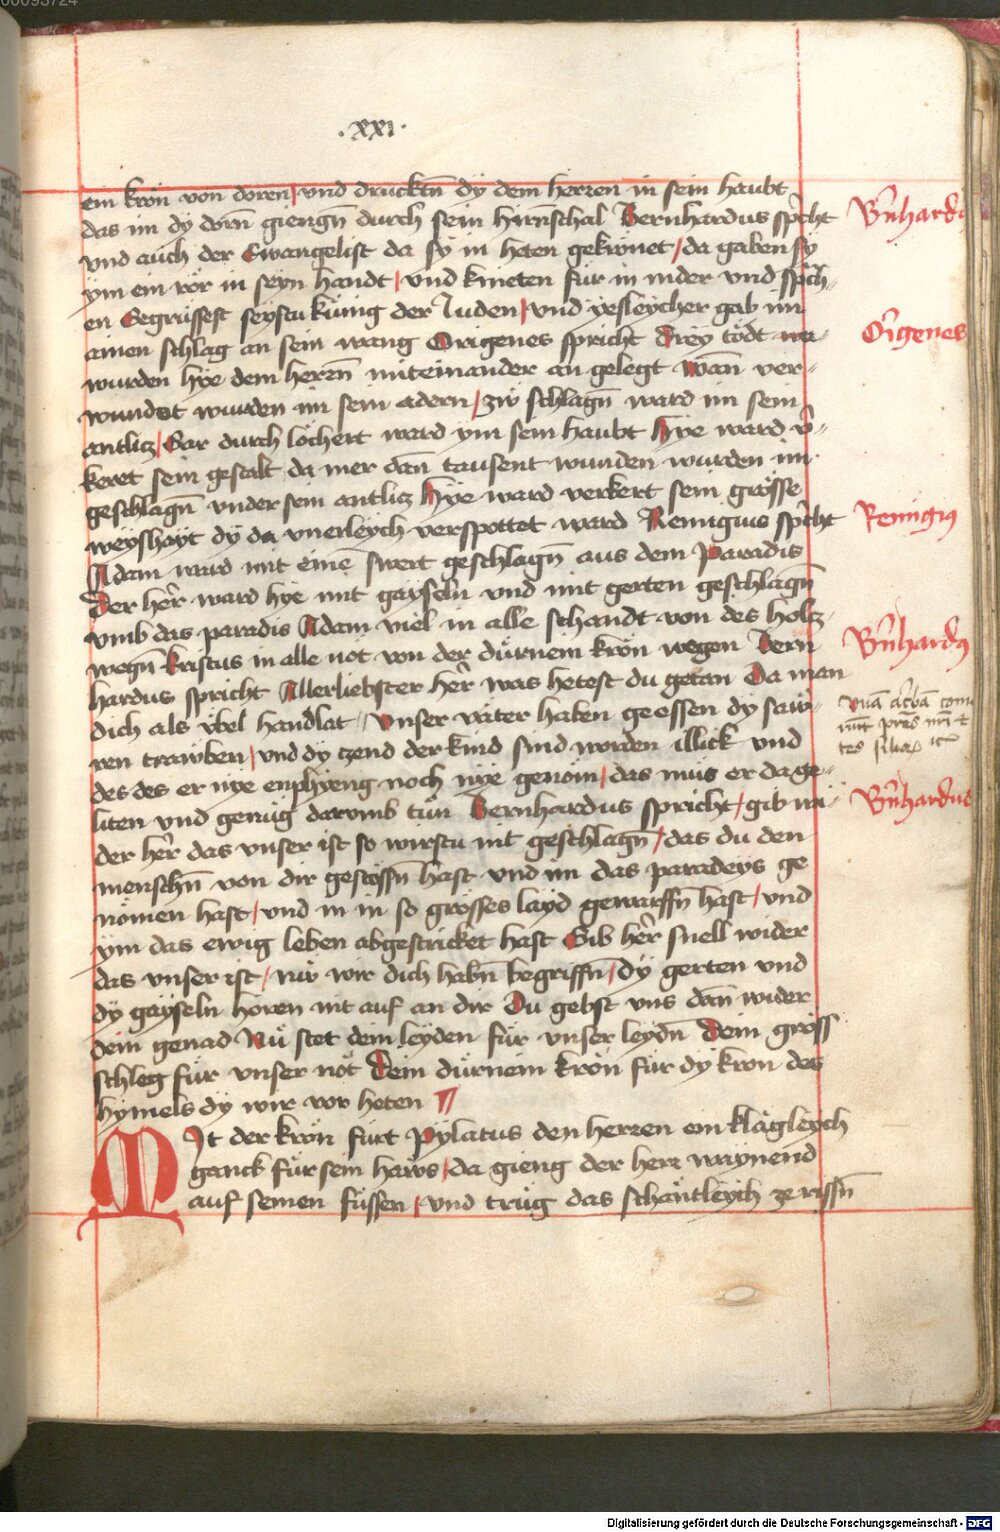 00093724
.xxi.
ein krön von doren / vnd drucktn̄ dy dem herren in sein haubt
das im dy dorn̄ giengn̄ durch sein hirn̄schal Bernhardus spricht
vnd auch der Ewangelist da sy in heten gekrönet / da gaben sy
ym ein rör in seyn handt / vnd knieten für in nider vnd spͣch-
en Gegrüssest seystu künig der Juden / vnd yesleycher gab im
ainen schlag an sein wang Origenes spricht Drey tödt
wurden hye dem heren̄ miteinander an gelegt wan̄ ver-
wundet wurden im sein adern / zw schlagn̄ ward im sein
antlicz / Gar durch löchert ward ym sein haubt Hye ward v̄-
keret sein gestalt da mer dan̄ tausent wunden wurden im
geschlagn̄ vnder sein antlicz Hye ward verkert sein grösse
weyshayt dy da vnerleych verspottet ward Remigius spricht
Adam ward mit eine̅ swert geschlagn̄ aus dem Paradis
Der her̄ ward hye mit gayseln vnd mit gerten geschlagn̄
vmb das paradis Adam viel in alle schandt von des holtz
wegn̄ Kristus in alle not von der dürnein krön wegen Bern
hardus spricht Allerliebster her̄ was hetest du getan Da man
dich als vbel handlat / vnser väter haben geessen dy saw-
ren trawben / vnd dy zend der kind sind worden illick vnd
des des er nye enphyeng noch nye genom / das müs er da ge-
liten vnd genüg darvmb tün Bernhardus spricht / gib wi-
der her̄ das vnser ist so wirstu nit geschlagn̄ / das du den
menschn̄ von dir gestössn̄ hast vnd im das paradeys ge
nömen hast / vnd in in so grösses layd geworffn̄ hast / vnd
ym das ewig leben abgestricket hast Gib her̄ snell wider
das vnser ist / nw wir dich habn̄ begriffn̄ / dy gerten vnd
dy gayseln hören nit auf an dir Du gebst vns dan̄ wider
dein genad Nu stet dein leyden für vnser leydn̄ dein gröss
schleg für vnser nöt Dein dürnein krön für dy kron des
hymels dy wir vor heten
Mjt der krön fürt Pylatus den herren ein klägleych
ganck für sein haws / da gieng der herr waynend
auf seinen füssen / vnd trüg das schäntleych zerissn̄
Bn̄hardus
Origenes
Remigius
Bn̄hardus
Bn̄hardus
Digitalisierung gefördert durch die Deutsche Forschungsgemeinschaft - DFG